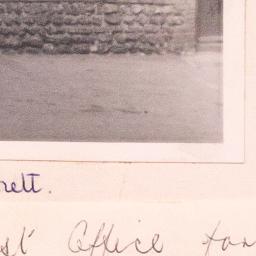 nett.
st' Office for